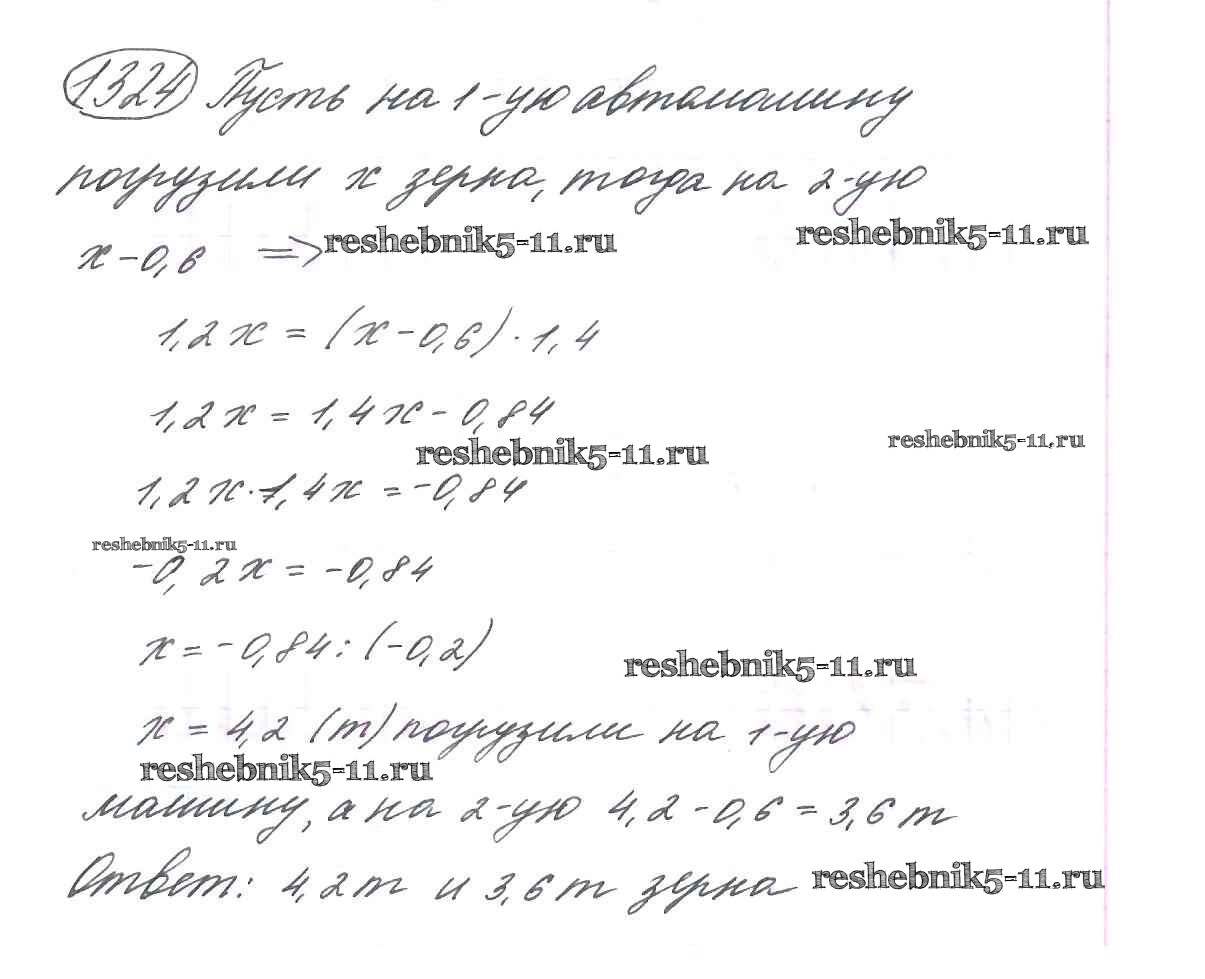 1324 Пусть на 1-ую автомашину
погрузили х зерна, тогда на 2-ую
х - 0,6 => reshebnik5-11.ru reshebnik5-11.ru
1,2х = (х - 0,6) · 1,4
1,2х = 1,4х - 0,84
reshebnik5-11.ru reshebnik5-11.ru
1,2х - 1,4х = -0,84
reshebnik5-11.ru
-0,2х = -0,84
х = -0,84 : (-0,2)
reshebnik5-11.ru
х = 4,2 (т) погрузили на 1-ую
reshebnik5-11.ru
машину, а на 2-ую 4,2 - 0,6 = 3,6 т
Ответ: 4,2 т и 3,6 т зерна reshebnik5-11.ru